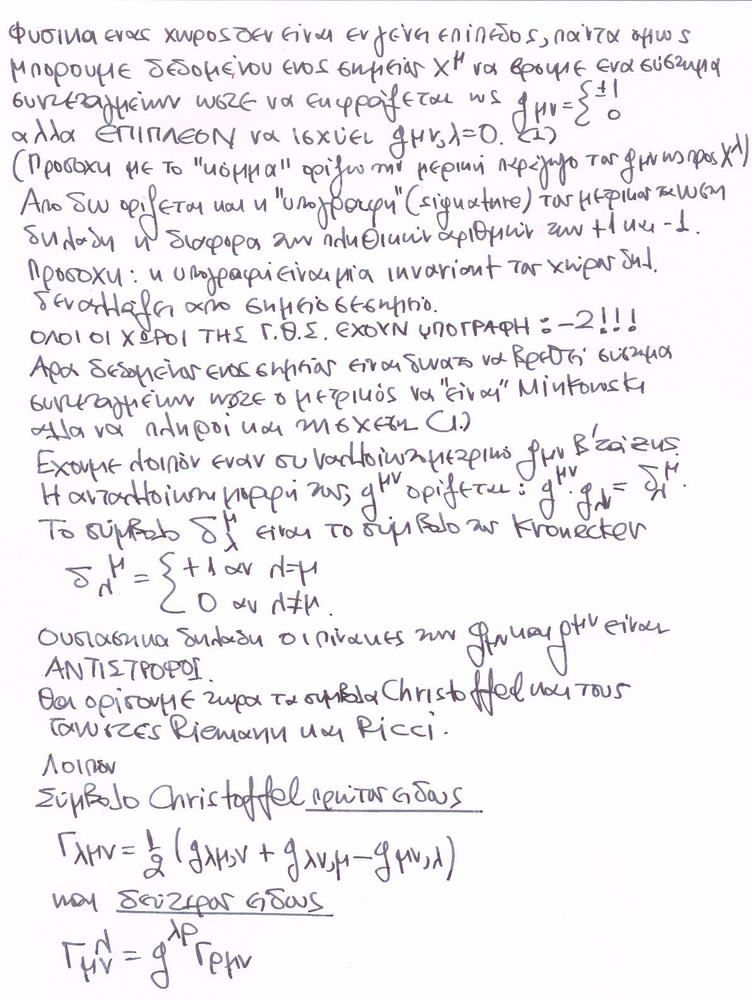 Φυσικα ενας χωρος δεν είναι εν γένει επίπεδος, πάντα όμως
μπορουμε δεδομένου ενος σημείου X^μ να βρουμε ενα σύστημα
συντεταγμένων ωστε να εκφράζεται ως g_μν = { ±1
0
αλλα ΕΠΙΠΛΕΟΝ να ισχύει g_μν,λ = 0. (1)
(Προσοχη με το "κόμμα" ορίζω την μερική παράγωγο του g_μν ως προς X^λ)
Απο δω ορίζεται και η "υπογραφη" (signature) του μετρικου τανυστη
δηλαδη η διαφορα των πληθικών αριθμών των +1 και -1.
Προσοχη: η υπογραφή είναι μία invariant του χώρου δηλ.
δεν αλλάζει απο σημείο σε σημείο.
ΟΛΟΙ ΟΙ ΧΩΡΟΙ ΤΗΣ Γ.Θ.Σ. ΕΧΟΥΝ ΥΠΟΓΡΑΦΗ : -2!!!
Αρα δεδομένου ενος σημείου είναι δυνατο να βρεθεί σύστημα
συντεταγμένων ωστε ο μετρικός να "είναι" Minkowski
αλλα να πληροί και τη σχεση (1.)
Εχουμε λοιπόν εναν συναλλοίωτο μετρικό g_μν Β' τάξης.
Η ανταλλοίωτη μορφή του, g^μν ορίζεται: g^μν · g_νλ = δ_λ^μ.
Το σύμβολο δ_λ^μ είναι το σύμβολο του Kronecker
δ_λ^μ = { +1 αν λ=μ
0 αν λ≠μ.
Ουσιαστικα δηλαδη οι πίνακες των g_μν και g^μν είναι
ΑΝΤΙΣΤΡΟΦΟΙ.
Θα ορίσουμε τωρα τα σύμβολα Christoffel και τους
τανυστες Riemann και Ricci.
Λοιπον
Σύμβολο Christoffel πρώτου ειδους
Γ_λμν = 1/2 (g_λμ,ν + g_λν,μ - g_μν,λ)
και δεύτερου ειδους
Γ_μν^λ = g^λρ Γ_ρμν